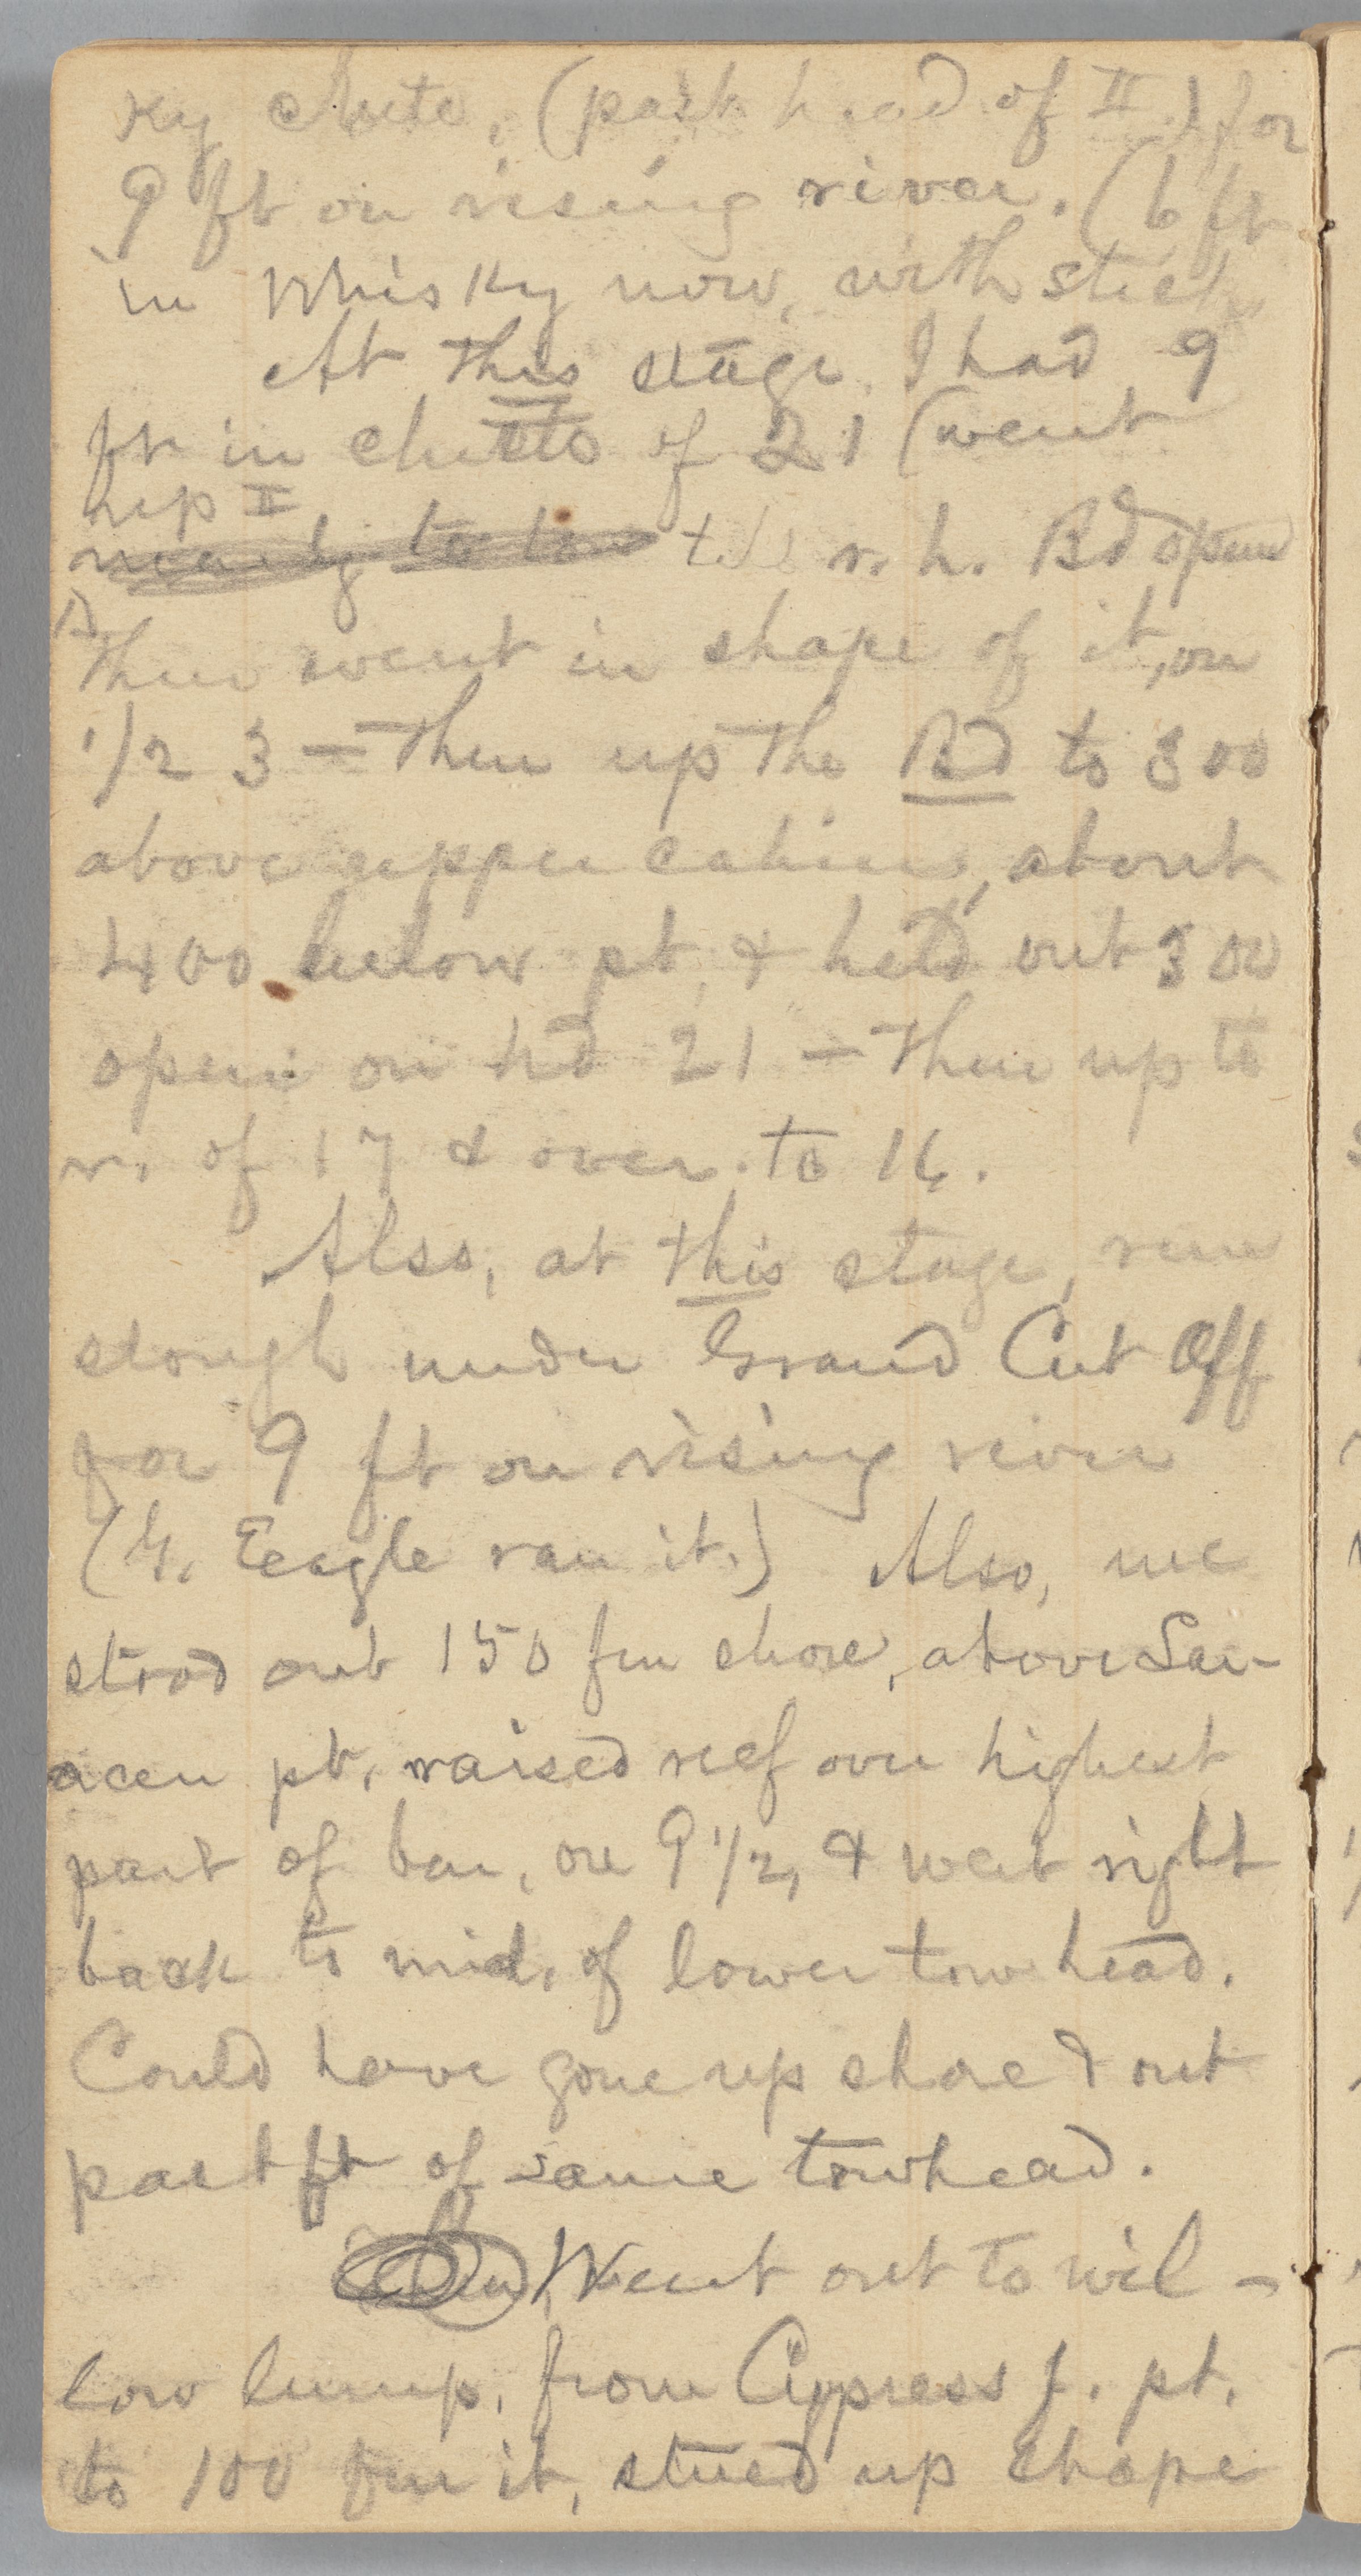 ky chute, (past head of II.) for
9 ft on rising river. (6 ft
in Whisky now, with stick
At this stage I had 9
ft in chute of 21 (went
up II
nearly to to till r. h. Bd open
then went in shape of it, on
1/2 3 — then up the Bd to 300
above upper cabin, about
400 below pt, & held out 300
open on hd 21 — then up to
r. of 17 & over to 16.
Also, at this stage, run
slough under Grand Cut Off
for 9 ft on rising river
(G. Eeagle ran it.) Also, we
stood out 150 fm shore, above Sar-
acen pt. raised reef over highest
part of bar, on 9 1/2, & went right
back to mid. of lower tow head.
Could have gone up shore & out
past ft of same towhead.
Went out to wil-
low lump, from Cypress f. pt.
to 100 fm it, stued up shape